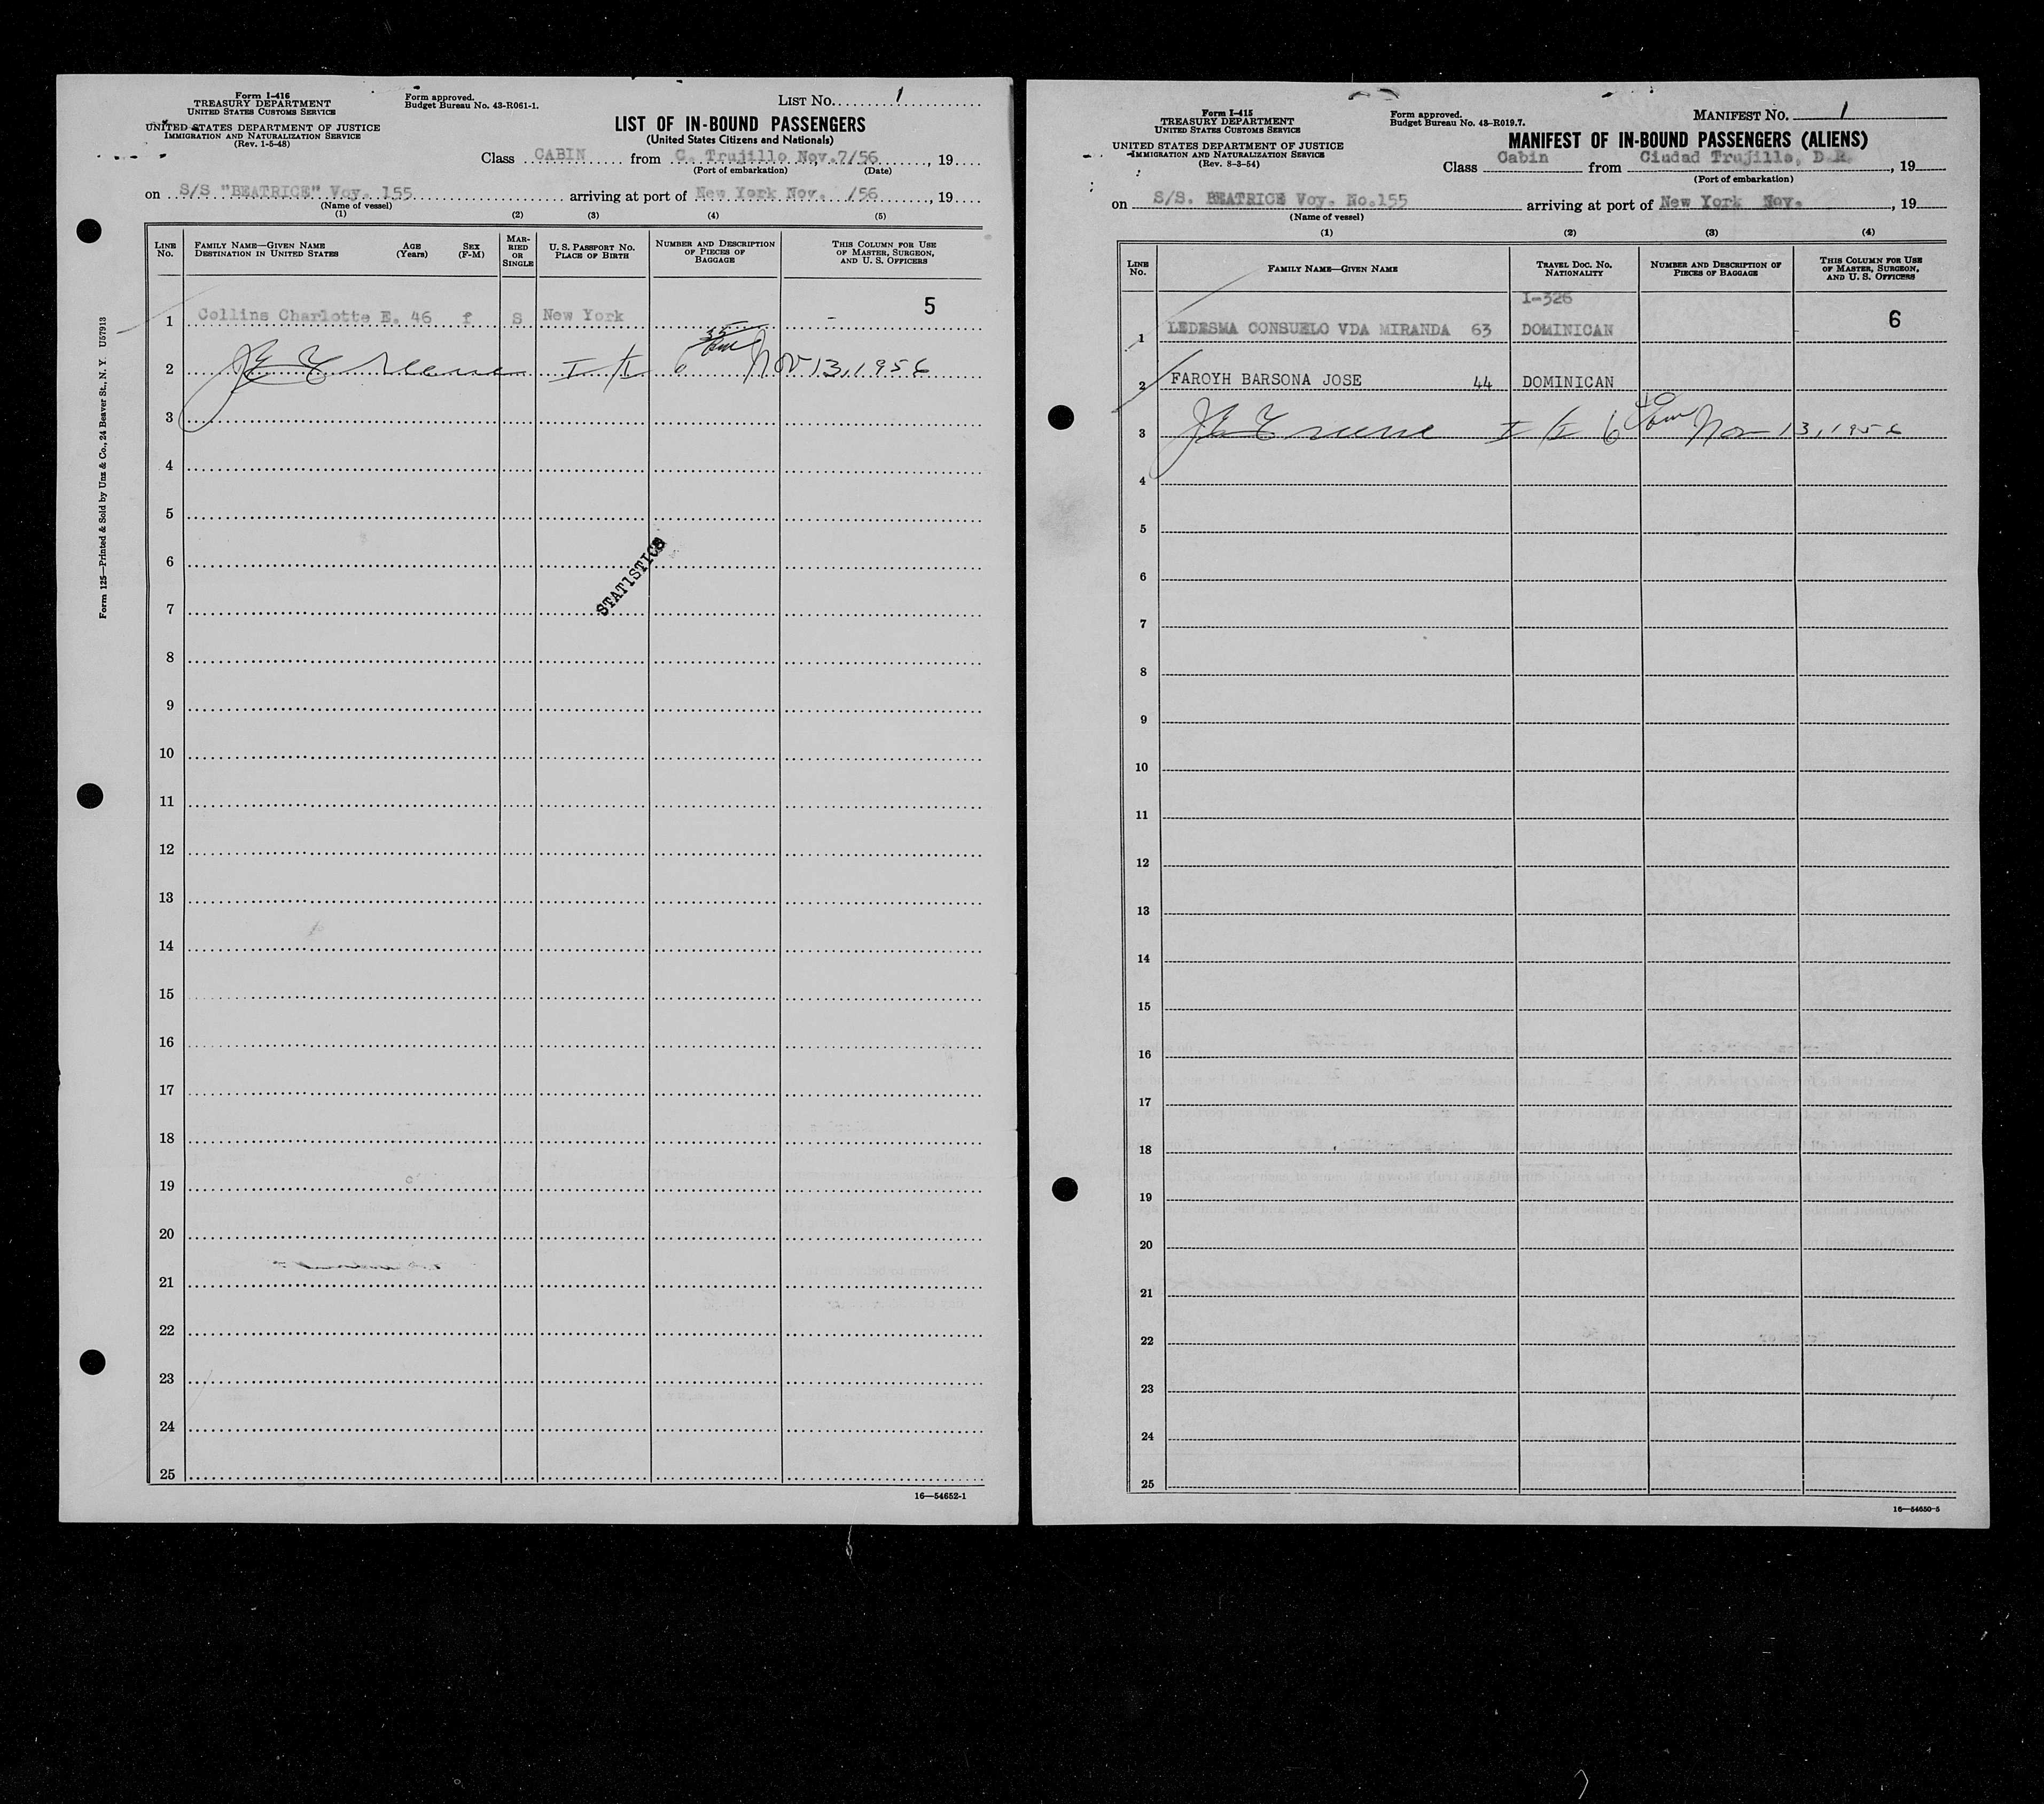 Form I-416
TREASURY DEPARTMENT
UNITED STATES CUSTOMS SERVICE
UNITED STATES DEPARTMENT OF JUSTICE
IMMIGRATION AND NATURALIZATION SERVICE
(Rev. 1-5-48)
Form approved.
Budget Bureau No. 43-R061-1.
LIST NO. 1
LIST OF IN-BOUND PASSENGERS
(United States Citizens and Nationals)
Class CABIN from C. Trujillo Nov.7/56, 19
(Port of embarkation) (Date)
on S/S "BEATRICE" Voy. 155 arriving at port of New York Nov. /56, 19
(Name of vessel)
(1) (2) (3) (4) (5)
LINE NO.
FAMILY NAME—GIVEN NAME
DESTINATION IN UNITED STATES
AGE (Years)
SEX (F-M)
MARRIED OR SINGLE
U. S. PASSPORT NO.
PLACE OF BIRTH
NUMBER AND DESCRIPTION OF PIECES OF BAGGAGE
THIS COLUMN FOR USE OF MASTER, SURGEON, AND U. S. OFFICERS
5
1 Collins Charlotte E. 46 f S New York -
2 Nov 13, 1956
3
4
5
6
STATISTICS
7
8
9
10
11
12
13
14
15
16
17
18
19
20
21
22
23
24
25
16—54652-1
Form 125—Printed & Sold by Unz & Co., 24 Beaver St., N. Y. U57913
Form I-415
TREASURY DEPARTMENT
UNITED STATES CUSTOMS SERVICE
UNITED STATES DEPARTMENT OF JUSTICE
IMMIGRATION AND NATURALIZATION SERVICE
(Rev. 8-3-54)
Form approved.
Budget Bureau No. 43-R019.7.
MANIFEST NO. 1
MANIFEST OF IN-BOUND PASSENGERS (ALIENS)
Class Cabin from Ciudad Trujillo, D.R., 19
(Port of embarkation)
on S/S. BEATRICE Voy. No.155 arriving at port of New York Nov., 19
(Name of vessel)
(1) (2) (3) (4)
LINE NO.
FAMILY NAME—GIVEN NAME
TRAVEL DOC. NO.
NATIONALITY
NUMBER AND DESCRIPTION OF PIECES OF BAGGAGE
THIS COLUMN FOR USE OF MASTER, SURGEON, AND U. S. OFFICERS
I-326
6
1 LEDESMA CONSUELO VDA MIRANDA 63 DOMINICAN
2 FAROYH BARSONA JOSE 44 DOMINICAN
3 Nov 13, 1956
4
5
6
7
8
9
10
11
12
13
14
15
16
17
18
19
20
21
22
23
24
25
16—54650-5